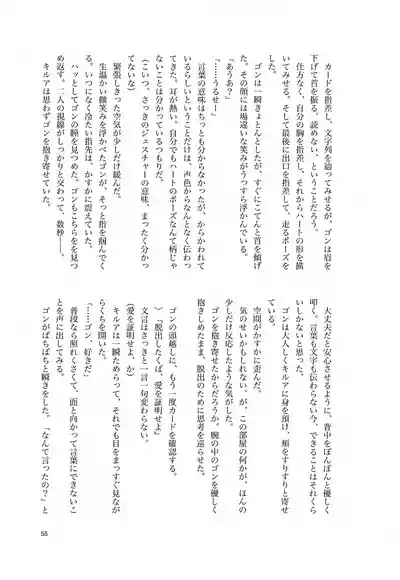 カードを指差し、文字列を辿ってみせるが、ゴンは眉を
下げて首を振る。読めない、ということだろう。
仕方なく、自分の胸を指差して、それからハートの形を描
いてみせる。そして最後に出口を指差して、走るポーズを
した。
ゴンは一瞬きょとんとしたが、すぐにこてんと首を傾げ
た。その顔には場違いな笑みがうっすら浮かんでいる。
「あうあ？」
「……うるせー」
言葉の意味はちっとも分からなかったが、からかわれて
いるらしいということだけは、声色からなんとなく伝わっ
てきた。耳が熱い。自分でもハートのポーズなんて柄じゃ
ないことは分かっているつもりだ。
（こいつ、さっきのジェスチャーの意味、まったく分かっ
てないな）
緊張しきった空気が少しだけ緩んだ。
生温かい微笑みを浮かべたゴンが、そっと指を掴んでく
る。いつになく冷たい指先は、かすかに震えていた。
ハッとしてゴンの瞳を見つめた。ゴンもこちらをを見つ
め返す。二人の視線がしっかりと交わって、数秒――。
キルアは思わずゴンを抱き寄せていた。
大丈夫だと安心させるように、背中をぽんぽんと優しく
叩く。言葉も文字も伝わらない今、できることはそれくら
いしかないと思った。
ゴンは大人しくキルアに身を預け、頬をすりすりと寄せ
ている。
空間がかすかに歪んだ。
気のせいかもしれない。が、この部屋の何かが、ほんの
少しだけ反応したような気がした。
ゴンを抱き寄せたからだろうか。腕の中のゴンを優しく
抱きしめたまま、脱出のために思考を巡らせた。
ゴンの頭越しに、もう一度カードを確認する。
）「脱出したくば、愛を証明せよ」
文言はさっきと一言一句変わらない。
（愛を証明せよ、か）
キルアは一瞬ためらって、それでも目をまっすぐ見なが
らくちを開いた。
「……ゴン、好きだ」
普段なら照れくさくて、面と向かって言葉にできないこ
とを声に出してみる。
ゴンがぱちぱちと瞬きをした。「なんて言ったの？」と
55